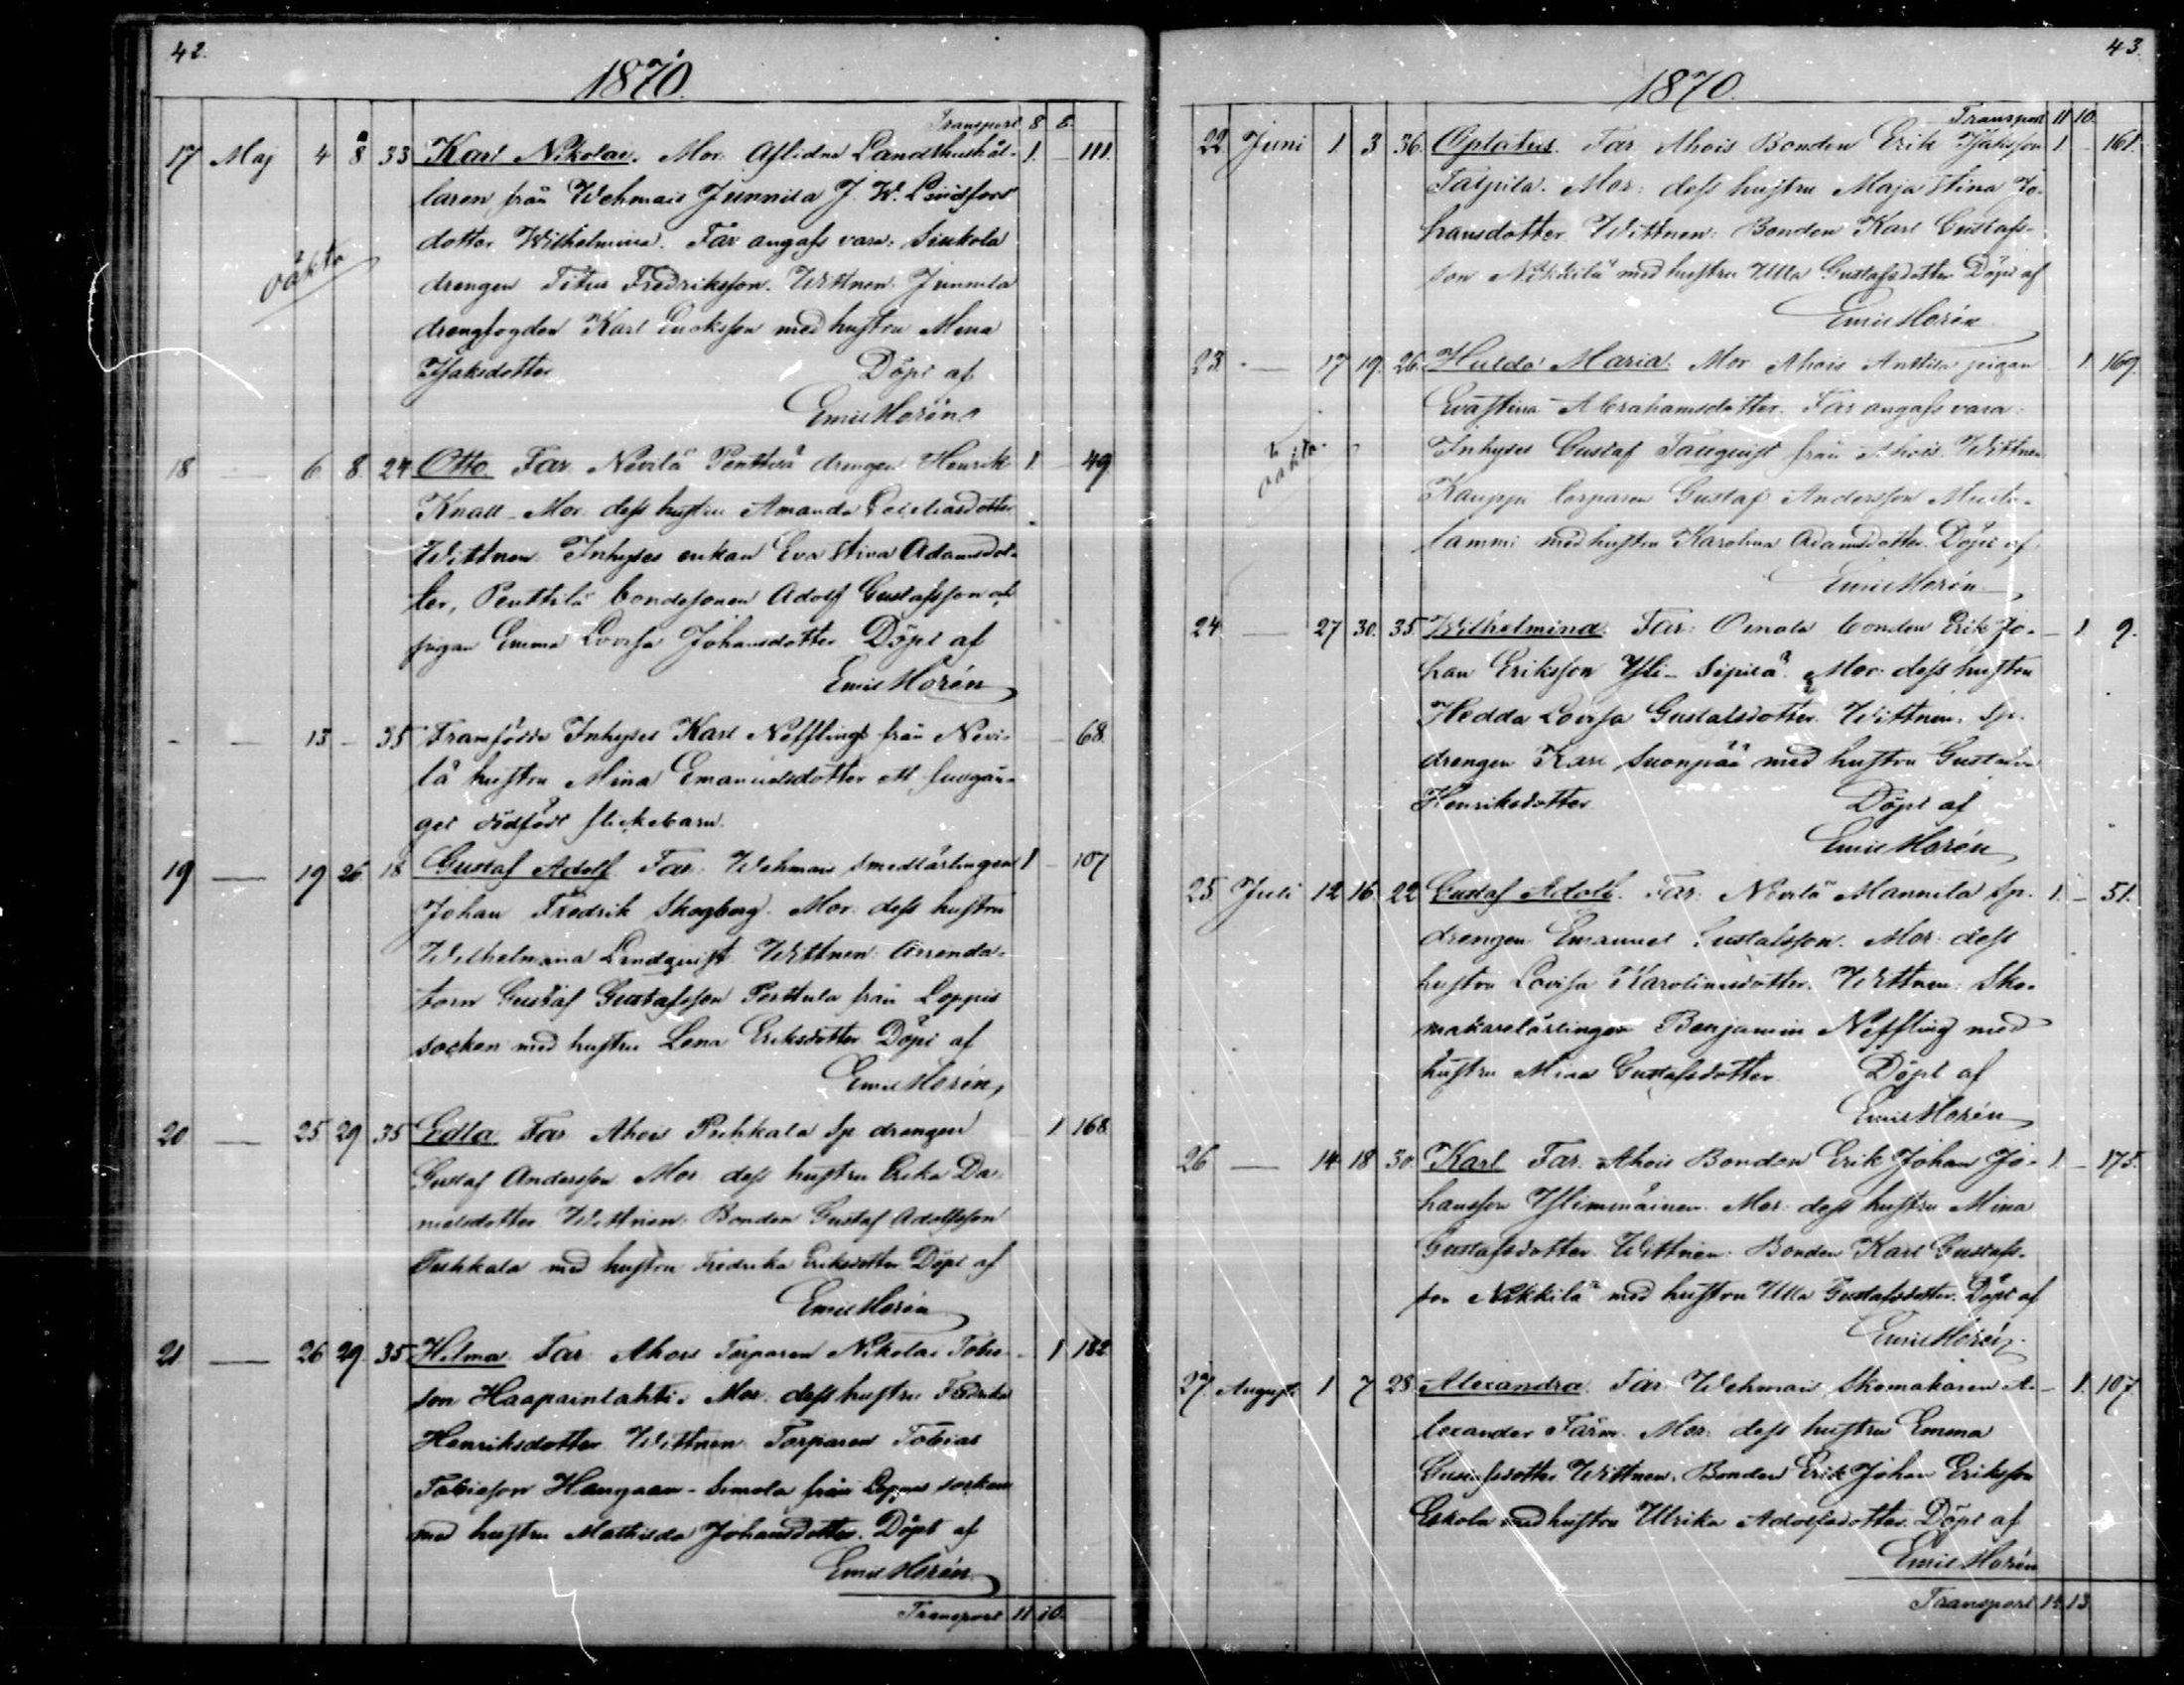 42.
1870.
Transport 8 8.
17 Maj 4 8 33 Karl Nikolai. Mor: Aflidne Landthushål- 1. - 111.
laren från Wehmais Junnila J. W. Lindfors
dotter Wilhelmina. Far angafs vara: Siukola
oäkta
drengen Titus Fredriksson. Wittnen: Junnila
drengfogden Karl Eriksson med hustru Mina
Isaksdotter Döpt af
Emil Horén
18 — 6. 8. 24 Otto. Far: Nevilä Penttilä drengen Henrik 1. - 49.
Knall. Mor: dess hustru Amanda
Wittnen: Inhyses enkan Eva Stina Adamsdot-
ter, Penttilä bondesonen Adolf Gustafsson och
pigan Emma Lovisa Johansdotter Döpt af
Emil Horén
- — 13 - 35 Framfödde Inhyses Karl Nefflings från Nevi- - - 68.
lä hustru Mina Emanuelsdotter ett fullgån-
get dödfödt flickebarn.
19 — 19 26. 18 Gustaf Adolf. Far: Wehmais Smedlärlingen 1 - 107
Johan Fredrik Skogberg. Mor: dess hustru
Wilhelmina Lindquist. Wittnen: Arrenda-
torn Gustaf Gustafsson Perttula från Loppis
socken med hustru Lena Eriksdotter Döpt af
Emil Horén,
20 — 25 29. 35 Edla. Far: Ahois Puhkala Sp. drengen - 1 168.
Gustaf Andersson Mor: dess hustru Erika Da-
nielsdotter Wittnen: Bonden Gustaf Adolfsson
Puhkala med hustru Fredrika Eriksdotter. Döpt af
Emil Horén
21 — 26 29. 35 Hilma. Far: Ahois Torparen Nikolai Tobia- - 1 182
son Haapainlahti. Mor: dess hustru Fredrika
Henriksdotter Wittnen: Torparen Tobias
Tobiasson Haugaan-Simola från Loppis socken
med hustru Mathilda Johansdotter. Döpt af
Emil Horén.
Transport 11 10.
43.
1870.
Transport 11 10.
22. Juni 1 3 36. Optatus. Far: Ahois Bonden Erik Isaksson 1 - 161.
Taipila. Mor: dess hustru Maja Stina Jo-
hansdotter Wittnen: Bonden Karl Gustafs-
son Nikkilä med hustru Ulla Gustafsdotter Döpt af
Emil Horén
23. — 17 19. 26. Hulda Maria. Mor: Ahois Anttila pigan - 1. 169.
Evastina Abrahamsdotter. Far angafs vara:
oäkta
Inhyses Gustaf Tauquist från Ahois. Wittnen:
Kauppi torparen Gustaf Andersson Musta-
lammi med hustru Karolina Adamsdotter. Döpt af
Emil Horén
24. — 27 30. 35. Wilhelmina. Far: Oinola bonden Erik Jo- - 1. 9.
han Eriksson Yli-Sipilä. Mor: dess hustru
Hedda Lovisa Gustafsdotter. Wittnen: Sp.
drengen Karl Suonpää med hustru Gustava
Henriksdotter Döpt af
Emil Horén
25. Juli 12 16. 22 Gustaf Adolf. Far: Nevilä Mannila Sp. 1. - 51.
drengen Emanuel Gustafsson. Mor: dess
hustru Lovisa Karolinasdotter. Wittnen: Sko-
makarelärlingen Benjamin Neffling med
hustru Mina Gustafsdotter Döpt af
Emil Horén
26 — 14 18 30. Karl. Far: Ahois Bonden Erik Johan Jo- 1. - 175.
hansson Ylimmäinen. Mor: dess hustru Mina
Gustafsdotter. Wittnen: Bonden Karl Gustafs-
son Nikkilä med hustru Ulla Gustafsdotter. Döpt af
Emil Horén.
27. Augusti 1 7 28. Alexandra. Far: Wehmais Skomakaren A- - 1. 107.
lexander Färm. Mor: dess hustru Emma
Gustafsdotter Wittnen: Bonden Erik Johan Eriksson
Eskola med hustru Ulrika Adolfsdotter. Döpt af
Emil Horén
Transport 14. 13